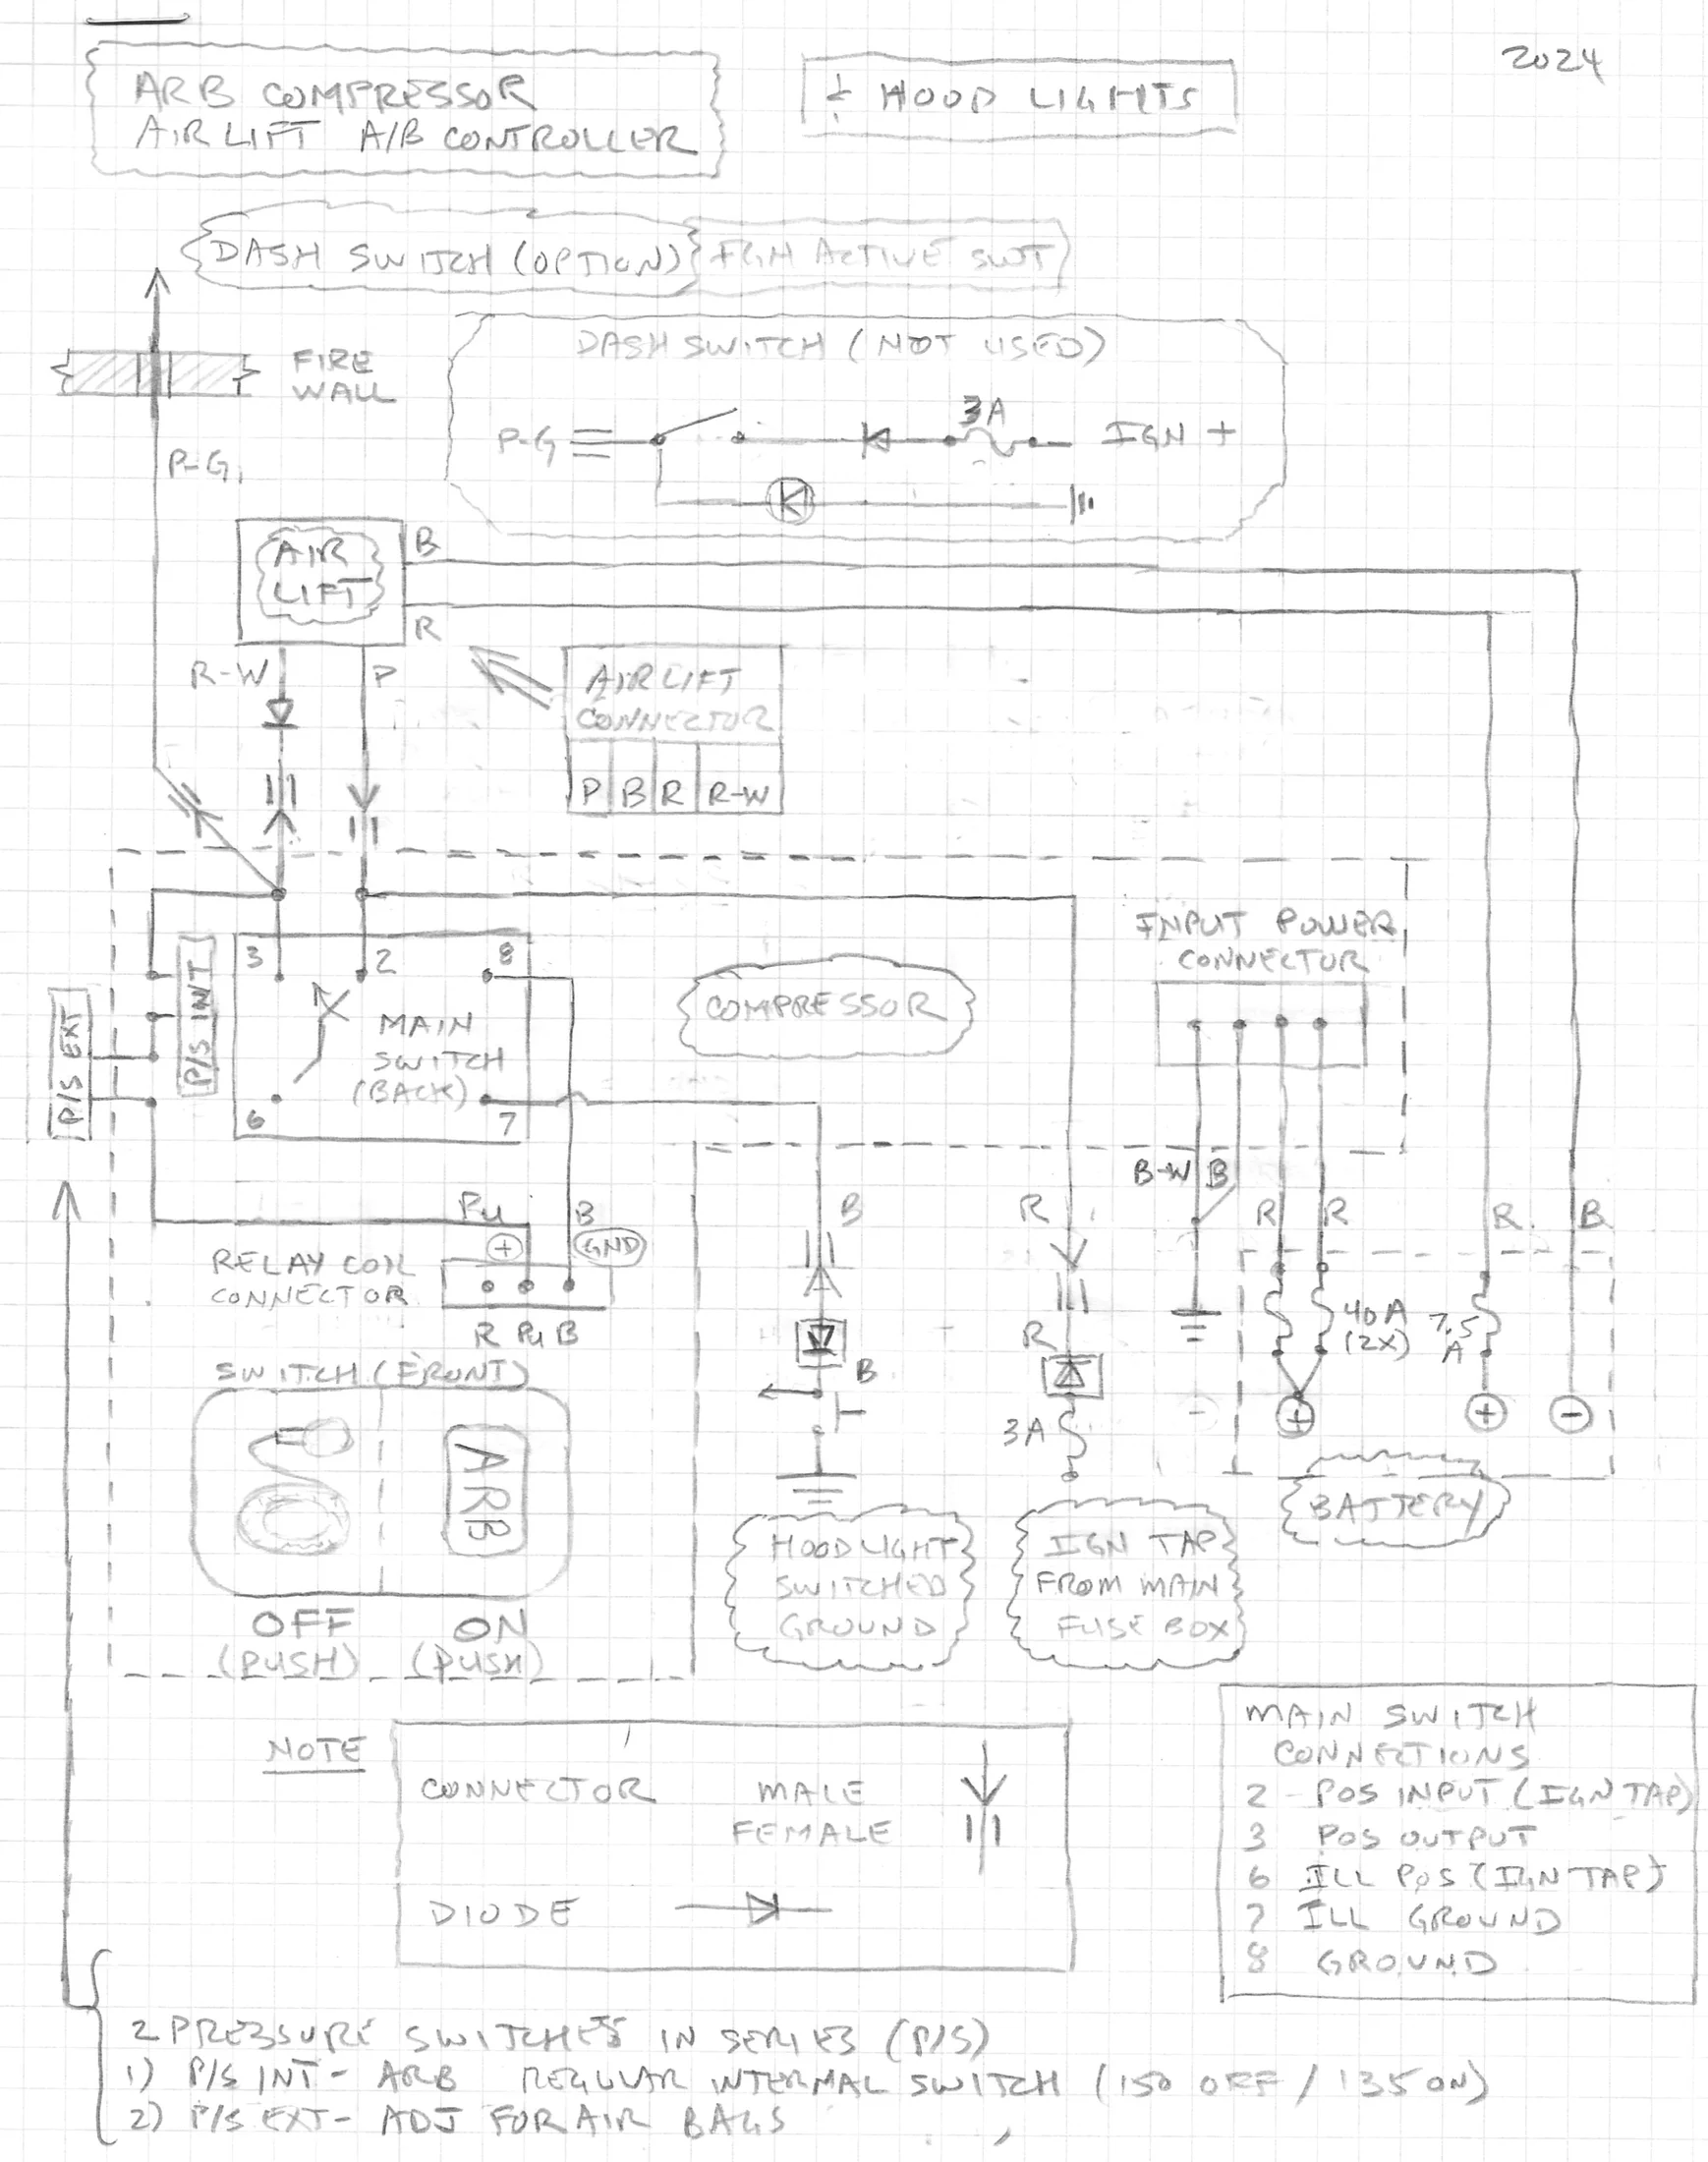 2024
ARB COMPRESSOR
AIR LIFT A/B CONTROLLER
& HOOD LIGHTS
DASH SWITCH (OPTION)
DASH SWITCH (NOT USED)
FIRE
WALL
P-G
3A
P-G
IGN +
AIR
LIFT
B
R
R-W
P
AIR LIFT
CONNECTOR
P B R R-W
INPUT POWER
CONNECTOR
3
2
8
P/S INT
P/S EXT
MAIN
SWITCH
(BACK)
6
7
COMPRESSOR
B-W B
R R
R
B
Pu
B
+
GND
RELAY COIL
CONNECTOR
R Pu B
B
R
R
B
3A
40A
(2X)
7.5
A
+
+
-
BATTERY
SWITCH (FRONT)
ARB
OFF
(PUSH)
ON
(PUSH)
HOOD LIGHT
SWITCHED
GROUND
IGN TAP
FROM MAIN
FUSE BOX
NOTE
CONNECTOR MALE
FEMALE
DIODE
MAIN SWITCH
CONNECTIONS
2 - POS INPUT (IGN TAP)
3 POS OUTPUT
6 ILL POS (IGN TAP)
7 ILL GROUND
8 GROUND
2 PRESSURE SWITCHES IN SERIES (P/S)
1) P/S INT - ARB REGULAR INTERNAL SWITCH (150 OFF / 135 ON)
2) P/S EXT - ADJ FOR AIR BAGS